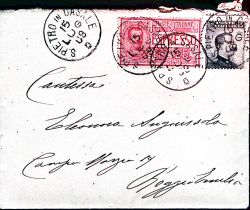 S. PIETRO IN CASALE
15
09
ESPRESSO
Contessa
Eleonora Anguissola
Campo Marzio 7
Reggio Emilia